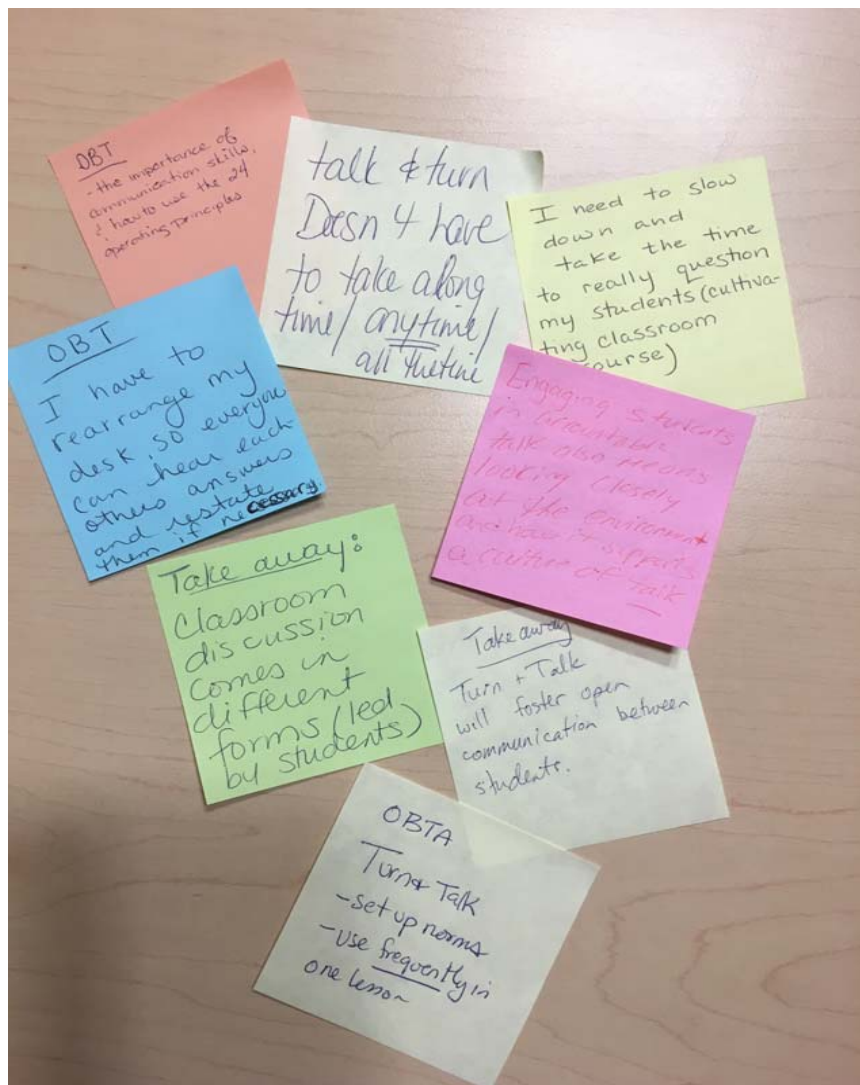 OBT
- the importance of
communication skills,
& how to use the 24
operating principles
talk & turn
Doesn't have
to take along
time/ anytime/
all the time
I need to slow
down and
take the time
to really question
my students (cultiva-
ting classroom
course)
OBT
I have to
rearrange my
desk, so everyone
can hear each
others answers
and restate
them if necessary.
Engaging students
in accountable
talk also means
looking closely
at the environment
and how it supports
a culture of talk
Take away:
Classroom
discussion
comes in
different
forms (led
by students)
Take away
Turn + Talk
will foster open
communication between
students.
OBTA
Turn & Talk
- set up norms
- use frequently in
one lesson